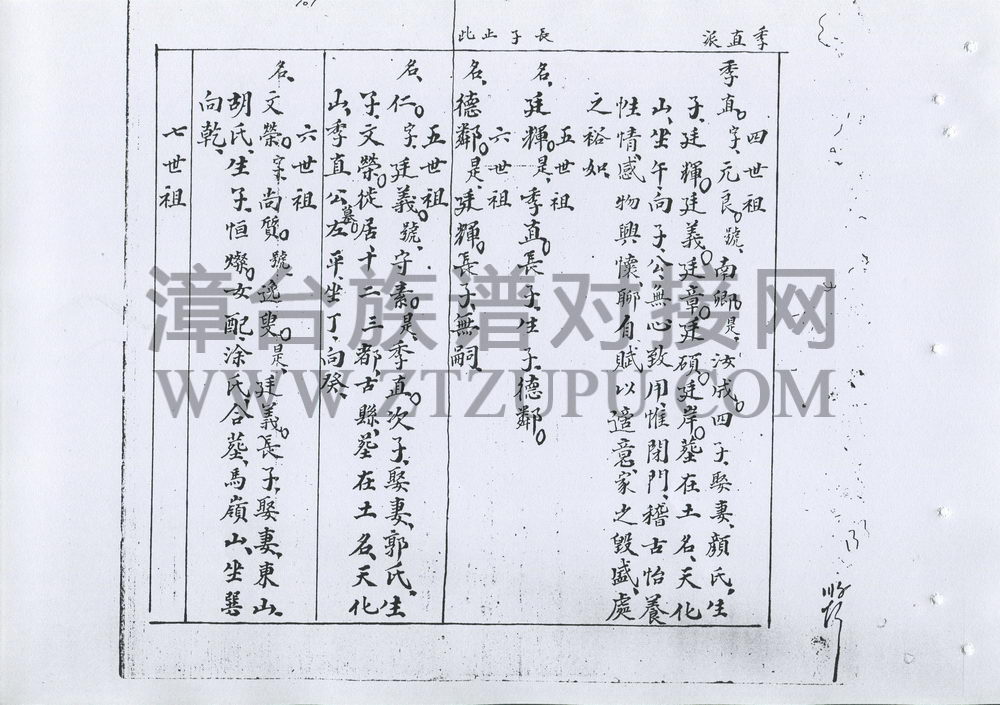 季直派
長子止此
四世祖
季直。字、元良。號、南卿。是、汝成。四子、娶妻、顏氏、生
子、廷輝。廷義。廷章。廷碩。廷岸。墓在土名、天化
山、坐午、向子、公無心致用、惟閉門、稽古怡養
性情、感物興懷、聊自賦以適意、家之毀盛、處
之裕如、
五世祖
名、廷輝。是、季直。長子、生子、德鄰。
六世祖
名、德鄰。是、廷輝。長子、無嗣、
五世祖
名、仁。字、廷義。號、守素。是、季直。次子、娶妻、郭氏、生
子、文榮。徙居十二三都、古縣、墓在土名、天化
山、季直公墓。左平、坐丁、向癸、
六世祖
名、文榮。字、尚質。號、逸叟。是、廷義。長子、娶妻、東山、
胡氏、生子、恒燦。女配、涂氏、合墓、馬嶺山、坐巽
向乾、
七世祖
漳台族谱对接网
WWW.ZTZUPU.COM